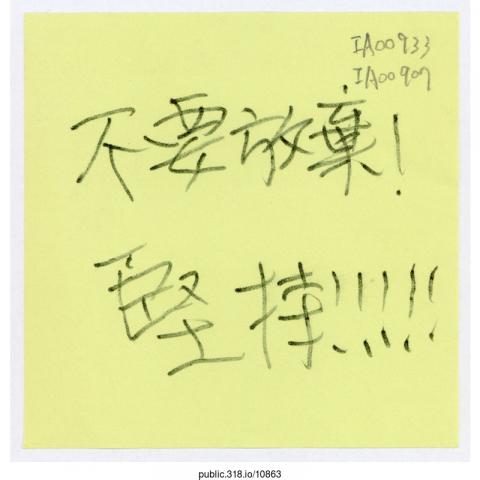 IA00933
IA00907
不要放棄!
堅持!!!!!
public.318.io/10863